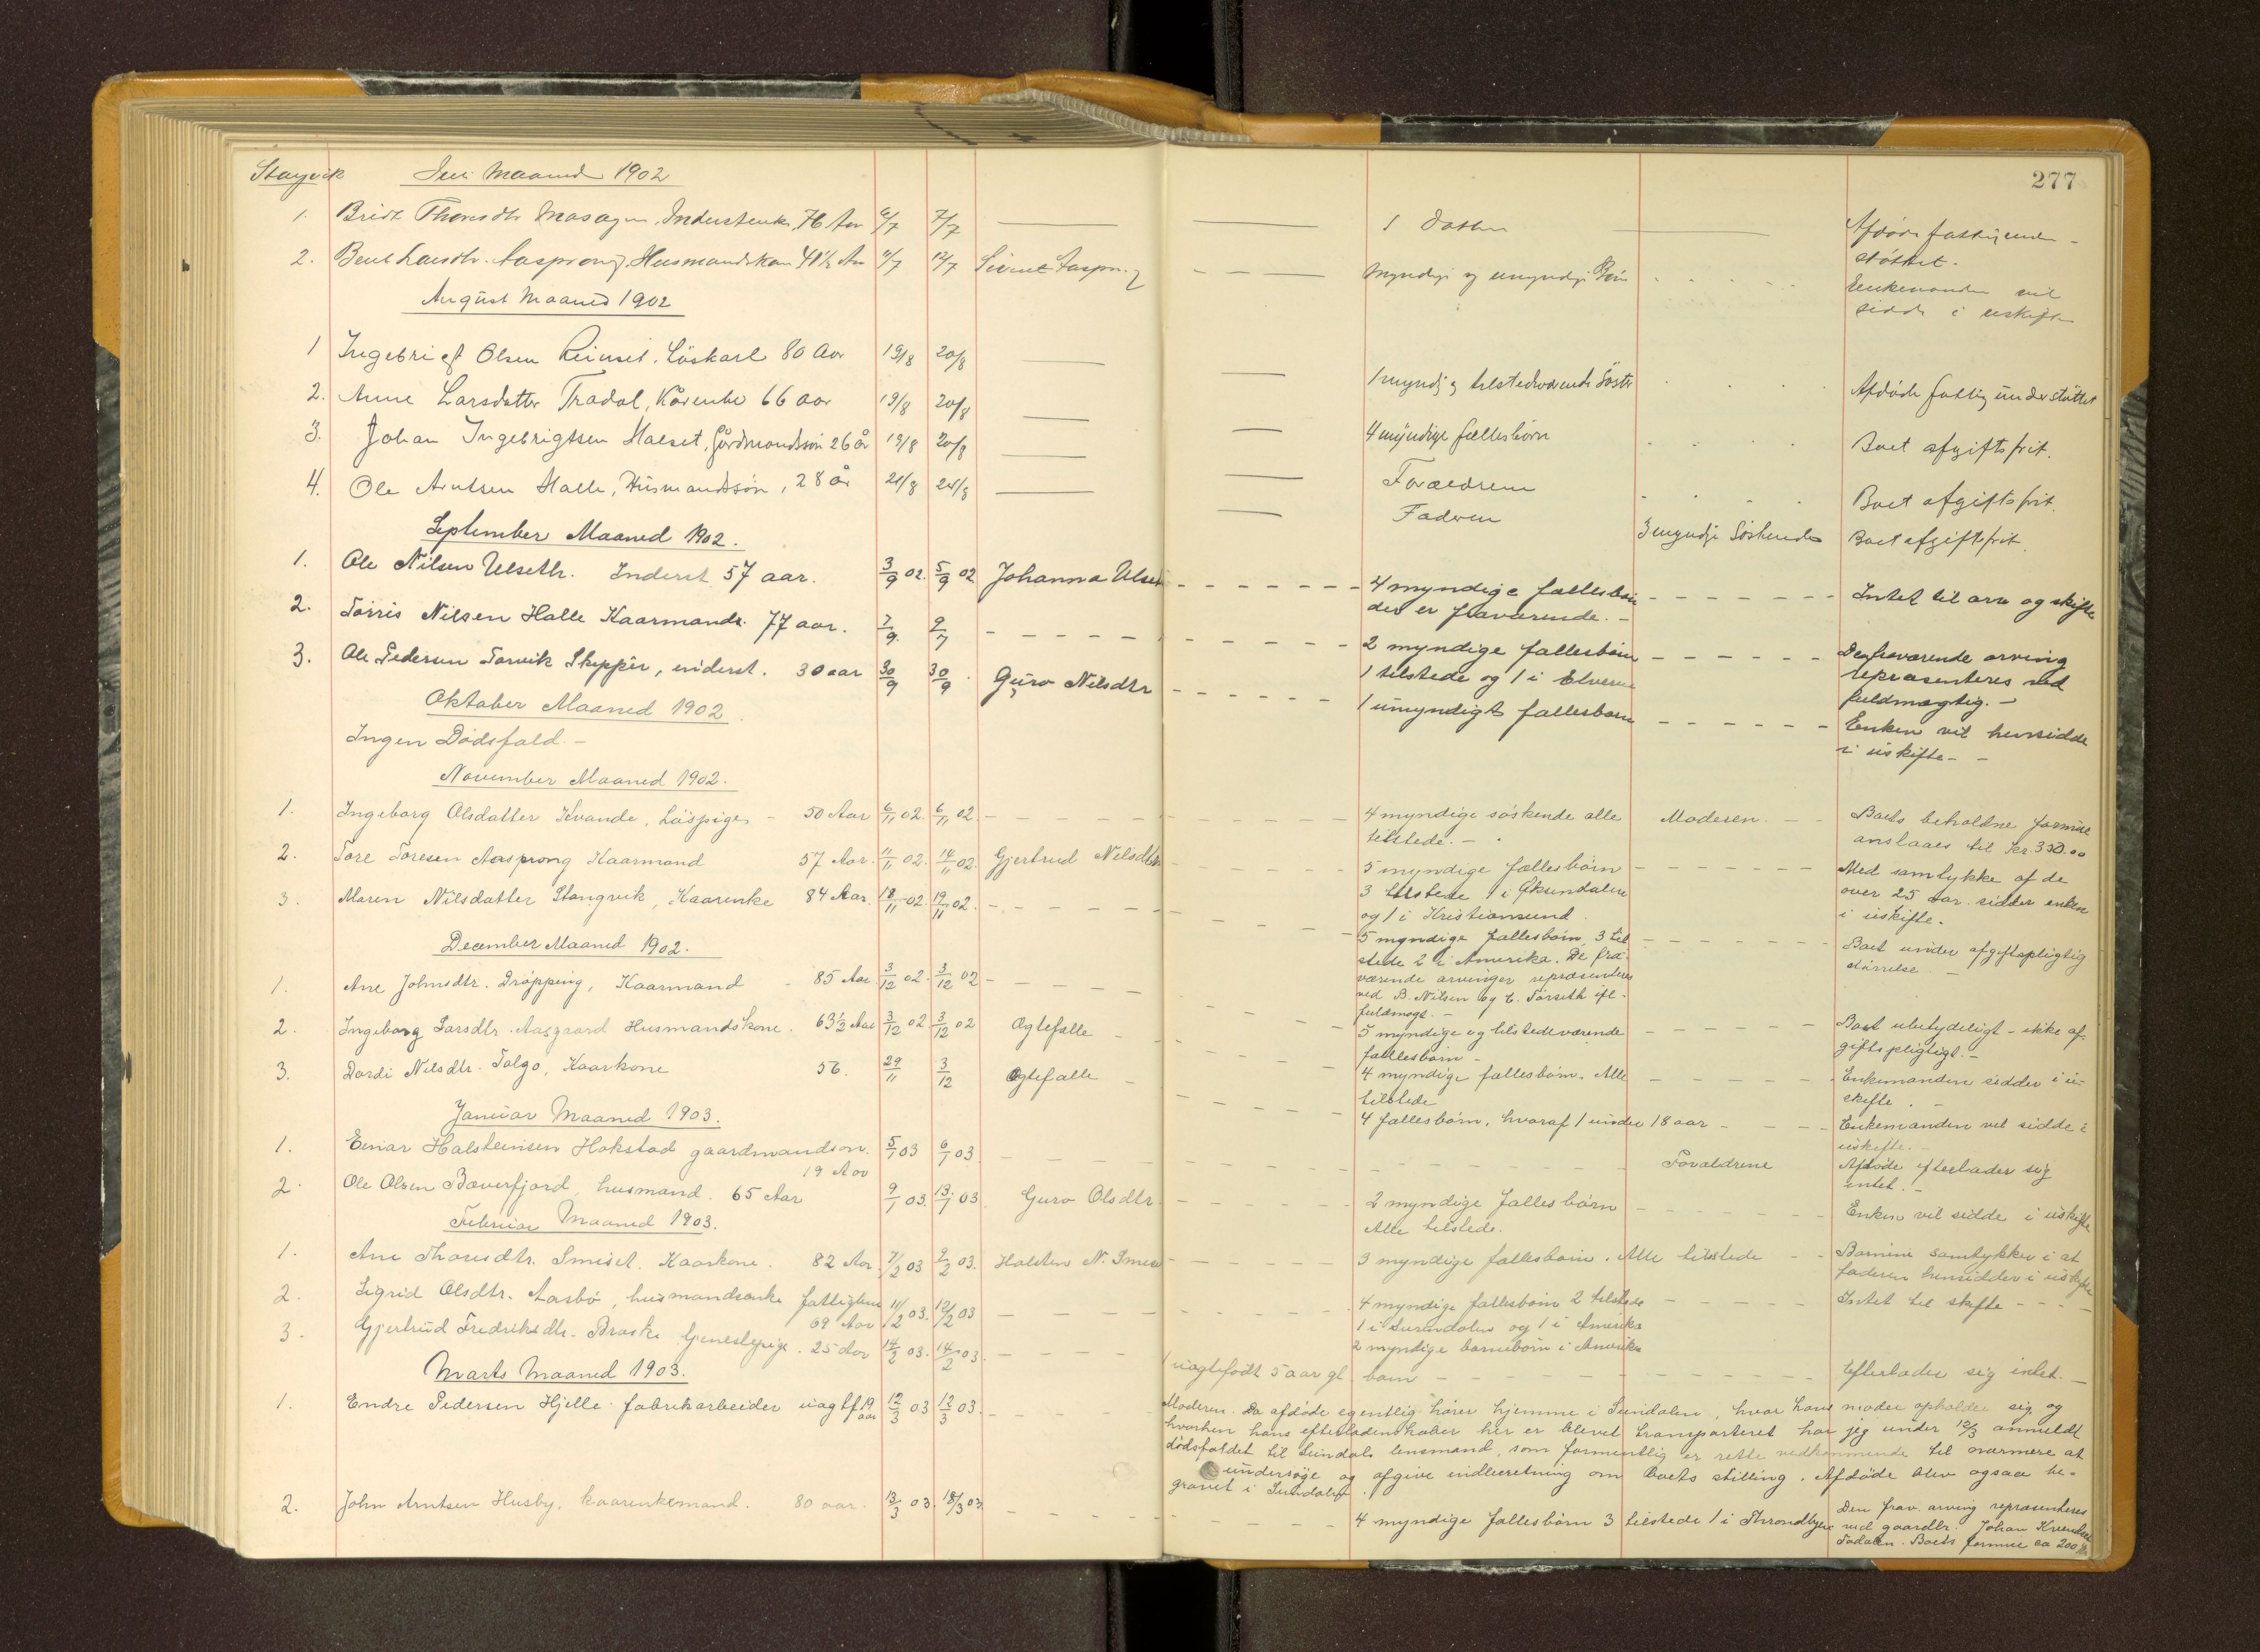 Stangvik Juli Maaned 1902
277
1. Brit Thoresdtr Inderstenke, 76 Aar 6/7 7/7 1 Datter Afdøde fattigunder-
støttet.
2. Beret Larsdtr. Aasprong, Husmandskone 41½ Aar 11/7 12/7 Sivert Aasprong Myndige og umyndige Børn Enkemanden vil
sidde i uskifte
August Maaned 1902
1 Ingebrigt Olsen Löskarl 80 Aar 19/8 20/8 1 myndig tilstedeværende Söster Afdöde fattigunderstöttet
2. Anne Larsdatter Tradal, Kårenke 66 aar 19/8 20/8 4 myndige fællesbörn Boet afgiftsfrit.
3. Johan Ingebrigtsen Halset, Gårdmandssön 26 år 19/8 20/8 Forældrene Boet afgiftsfrit.
4. Ole Arntsen Halle, Husmandssön, 28 år 21/8 24/8 Faderen 3 myndige Söskende Boet afgiftsfrit.
September Maaned 1902.
1. Ole Nilsen Ulseth. Inderst 57 aar. 3/9 02. 5/9 02 Johanna Ulset 4 myndige fællesbörn Intet til arv og skifte
der er fraværende. -
2. Torris Nilsen Halle Kaarmand. 77 aar. 7/9. 9/7 2 myndige fællesbörn Den fraværende arving
1 tilstede og 1 i repræsenteres ved
fuldmægtig. -
3. Ole Pedersen Torvik Skipper, inderst. 30 aar 30/9 30/9. Guro Nilsdtr 1 umyndigt fællesbarn Enken vil hensidde
i uskifte - -
Oktober Maaned 1902.
Ingen Dödsfald. -
November Maaned 1902.
1. Ingeborg Olsdatter Kvande, Löspige - 50 Aar 6/11 02. 6/11 02. 4 myndige söskende alle Moderen. - Boets beholdne formue
tilstede. - anslaaes til kr. 330.00
2. Tore Toresen Aasprong Kaarmand 57 Aar. 11/11 02. 14/11 02. Gjertrud Nilsdtr 5 myndige fællesbörn Med samtykke af de
3 tilstede 1 i Öksendalen over 25 aar sidder enken
og 1 i Kristiansund. i uskifte.
3. Maren Nilsdatter Stangvik, Kaarenke 84 Aar. 18/11 02. 19/11 02. 5 myndige fællesbörn, 3 til Boet under afgiftspligtig
stede 2 i Amerika. De fra- störrelse -
værende arvinger repræsenteres
ved B. Nilsen og E. Torseth ifl.
fuldmagt. -
December Maaned 1902.
1. Ane Johnsdtr. Dröpping, Kaarmand - 85 Aar 3/12 02. 3/12 02 - 5 myndige og tilstedeværende Boet ubetydeligt - ikke af-
fællesbörn - giftspligtigt. -
2. Ingeborg Larsdtr. Aasgaard Husmandskone. 63½ Aar 3/12 02 3/12 02 Ægtefælle 4 myndige fællesbörn. Alle Enkemanden sidder i u-
tilstede skifte. -
3. Dordi Nilsdtr. Talgö, Kaarkone 56. 29/11 3/12 Ægtefælle 4 fællesbörn, hvoraf 1 under 18 aar - Enkemanden vil sidde i
uskifte. -
Januar Maaned 1903.
1. Einar Halsteinsen Hakstad gaardmandsön. 5/1 03 6/1 03. Forældrene Afdöde efterlader sig
19 Aar intet. -
2. Ole Olsen Bæverfjord, husmand. 65 Aar 9/1 03. 13/1 03. Guro Olsdtr. 2 myndige fællesbörn Enken vil sidde i uskifte
Alle tilstede.
Februar Maaned 1903.
1. Ane Thoresdtr. Smiset. Kaarkone. 82 Aar 7/2 03 9/2 03. Halsten N. Smiset 3 myndige fællesbörn. Alle tilstede - Börnene samtykker i at
faderen hensidder i uskifte
2. Sigrid Olsdtr. Aasbö, husmandsenke fattiglem 11/2 03. 12/2 03 4 myndige fællesbörn 2 tilstede Intet til skifte - -
69 Aar 1 i Surendalen og 1 i Amerika
2 myndige barnebörn i Amerika
3. Gjertrud Fredriksdtr. Braske tjenestepige. 25 Aar 14/2 03. 14/2 03. 1 uægtefödt 5 aar gl. barn Efterlader sig intet. -
Marts Maaned 1903.
1. Endre Pedersen Hjelle fabrikarbeider uægtf 19 aar 12/3 03 12/3 03. Moderen. Da afdöde egentlig hörer hjemme i Sundalen, hvor hans moder opholder sig og
hvorhen hans efterladenskaber her er blevet transporteret har jeg under 12/3 anmeldt
dödsfaldet til Sundals lensmand, som formentlig er rette vedkommende til nærmere at
undersöge og afgive indberetning om Boets stilling. Afdöde blev ogsaa be-
gravet i Sundalen.
2. John Arntsen Husby, kaarenkemand. 80 aar. 13/3 03. 18/3 03. 4 myndige fællesbörn 3 tilstede 1 i Throndhjem Den frav. arving repræsenteres
ved gaardbr. Johan
Todalen. Boets formue ca 200 kr.